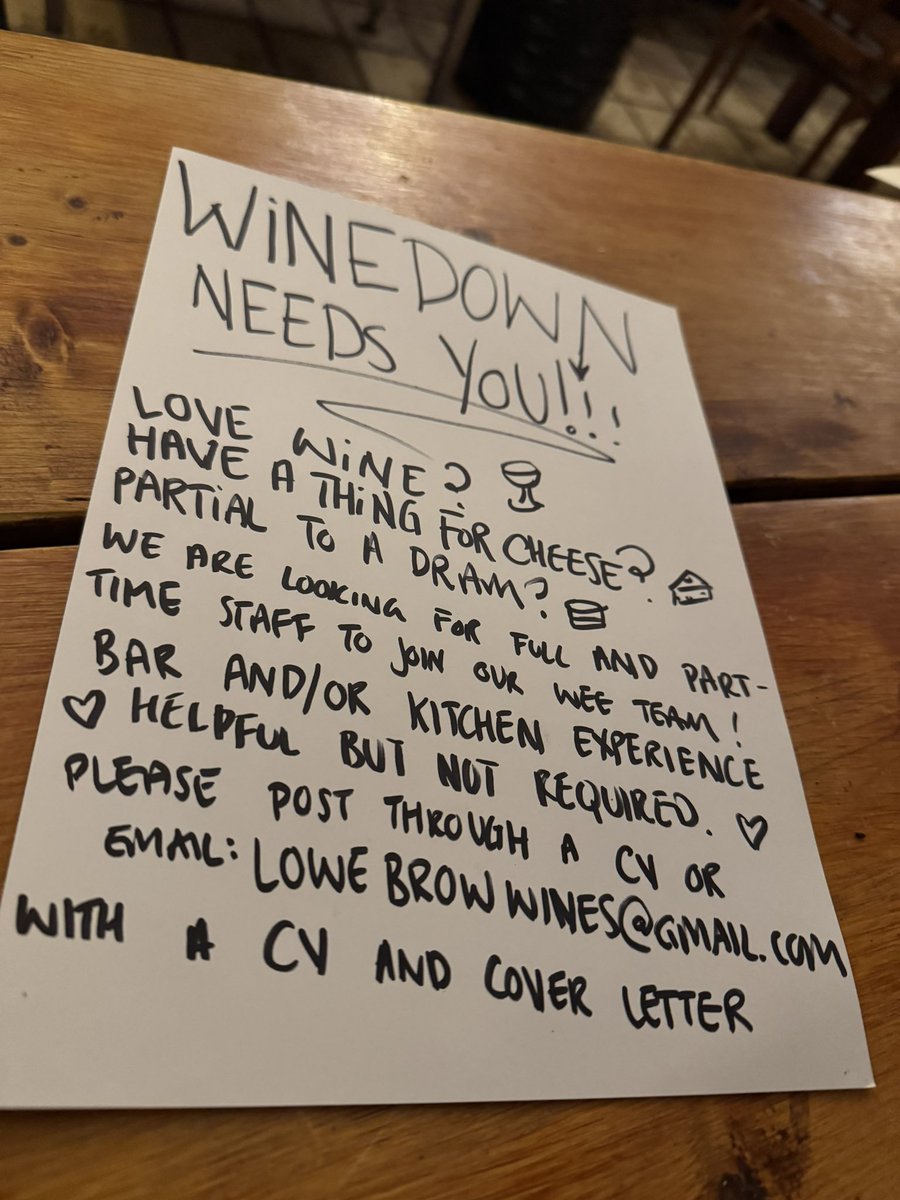 WiNEDOWN
NEEDS YOU!!!
LOVE WiNE?
HAVE A THiNG FOR CHEESE?
PARTiAL TO A DRAM?
WE ARE LOOKING FOR FULL AND PART-
TIME STAFF TO JOIN OUR WEE TEAM!
BAR AND/OR KITCHEN EXPERIENCE
♡ HELPFUL BUT NOT REQUIRED. ♡
PLEASE POST THROUGH A CV OR
EMAIL: LOWEBROWWINES@GMAIL.COM
WITH A CV AND COVER LETTER